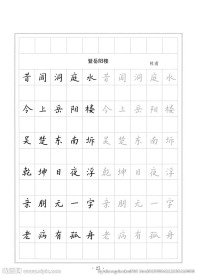 登岳阳楼
杜甫
昔闻洞庭水昔闻洞庭水
今上岳阳楼今上岳阳楼
吴楚东南坼吴楚东南坼
乾坤日夜浮乾坤日夜浮
亲朋无一字亲朋无一字
老病有孤舟老病有孤舟